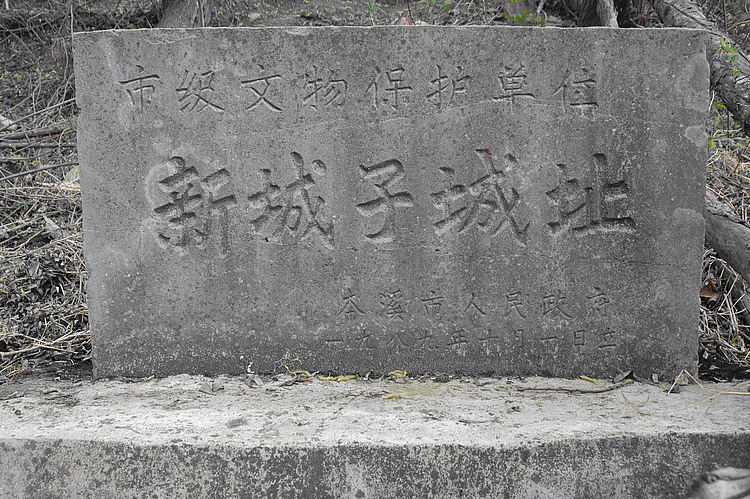 市级文物保护单位
新城子城址
本溪市人民政府
一九八九年十月一日立